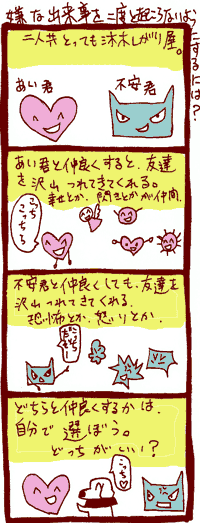 嫌な出来事を二度と起こらないようにするには?
二人共とっても淋しがり屋。
あい君
不安君
あい君と仲良くすると、友達
を沢山つれてきてくれる。
幸せとか、閃きとかが仲間。
こっち
こっちぃ
不安君と仲良くしても、友達を
沢山つれてきてくれる。
恐怖とか、怒りとか。
どちらと仲良くするかは、
自分で選ぼう。
どっちがいい?
こっち